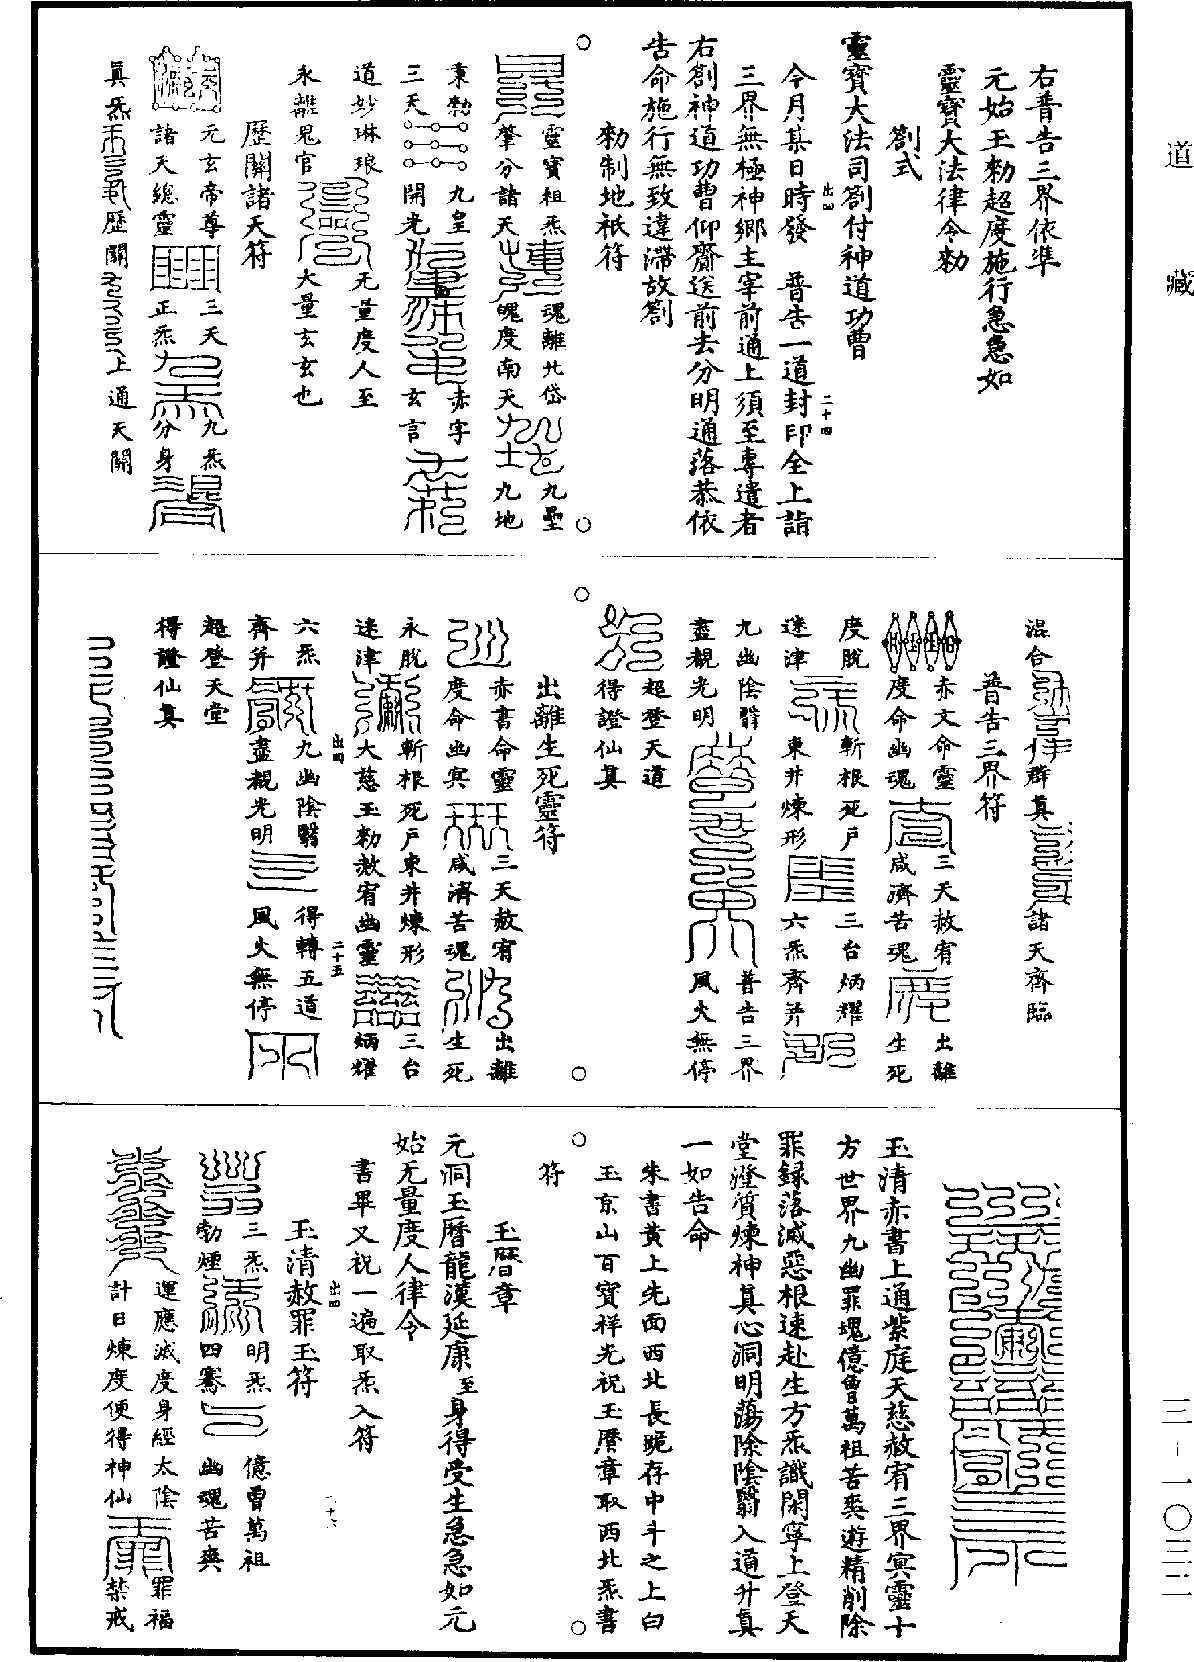 道藏
三-一〇三二
右普告三界依準
元始玉勑超度施行急急如
靈寶大法律令勑
劄式
靈寶大法司劄付神道功曹
今月某日時發 普告一道封印全上詣
三界無極神鄉主宰前通上須至專遣者
右劄神道功曹仰齎送前去分明通落恭依
告命施行無致違滯故劄
勑制地祇符
靈寶祖炁
肇分諸天
魂離北岱
魄度南天
九壘
九地
秉勑
三天
九皇
開光
赤字
玄言
道妙琳琅
永離鬼官
无量度人至
大量玄玄也
歷關諸天符
元玄帝尊
諸天總靈
三天
正炁
九炁
分身
真炁
歷關
上通天關
混合
群真
諸天齊臨
普告三界符
赤文命靈
度命幽魂
三天赦宥
咸濟苦魂
出離
生死
度脫
迷津
斬根死戶
東井煉形
三台炳耀
六炁齊并
九幽陰翳
盡覩光明
普告三界
風火無停
超登天道
得證仙真
出離生死靈符
赤書命靈
度命幽冥
三天赦宥
咸濟苦魂
出離
生死
永脫
迷津
斬根死戶東井煉形
大慈玉勑赦宥幽靈
三台
炳耀
六炁
齊并
九幽陰翳
盡覩光明
得轉五道
風火無停
超登天堂
得證仙真
玉清赤書上通紫庭天慈赦宥三界冥靈十
方世界九幽罪塊億曾萬祖苦爽遊精削除
罪錄落滅惡根速赴生方炁識閑寧上登天
堂澄質煉神真心洞明蕩除陰翳入道升真
一如告命
朱書黃上先面西北長跪存中斗之上曰
玉京山百寶祥光祝玉曆章取西北炁書
符
玉曆章
元洞玉曆龍漢延康至身得受生急急如元
始无量度人律令
書畢又祝一遍取炁入符
玉清赦罪玉符
三炁
勃煙
明炁
四騫
億曾萬祖
幽魂苦爽
運應滅度身經太陰
計日煉度便得神仙
罪福
禁戒
出四
二十四
出四
二十五
出四